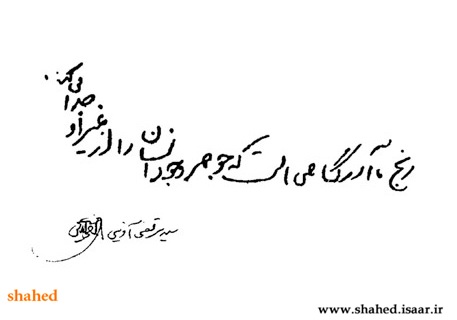 رنج، آذرگاهی است که جوهر وجود انسان را از غیر او جدا می‌کند.
سید مرتضی آوینی
shahed
www.shahed.isaar.ir